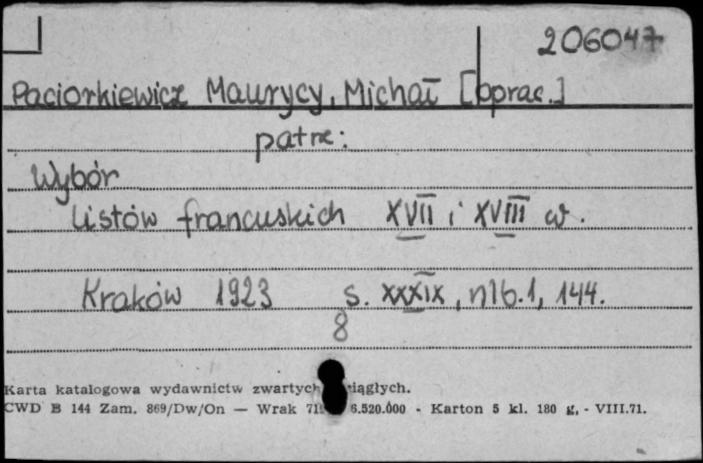 206047
Paciorkiewicz Maurycy, Michał [oprac.]
patrz:
Wybór
listów francuskich XVII i XVIII w.
Kraków 1923 s. XXXIX, nlb. 1, 144.
8
Karta katalogowa wydawnictw zwartych ciągłych.
CWD B 144 Zam. 869/Dw/On — Wrak 6.520.000 - Karton 5 kl. 180 g. - VIII.71.